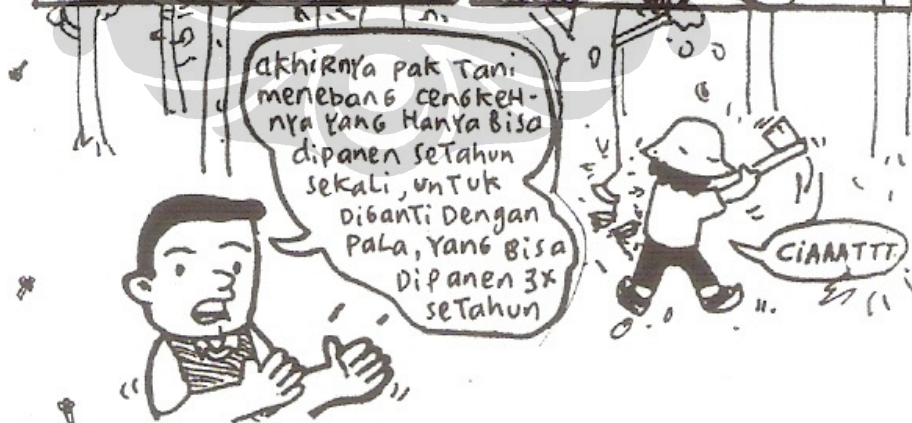 akhirnya pak Tani
menebang cengkeh-
nya yang Hanya Bisa
dipanen seTahun
sekali, unTuk
DiGanTi Dengan
PaLa, Yang Bisa
DiPanen 3x
seTahun
CiAAATTT